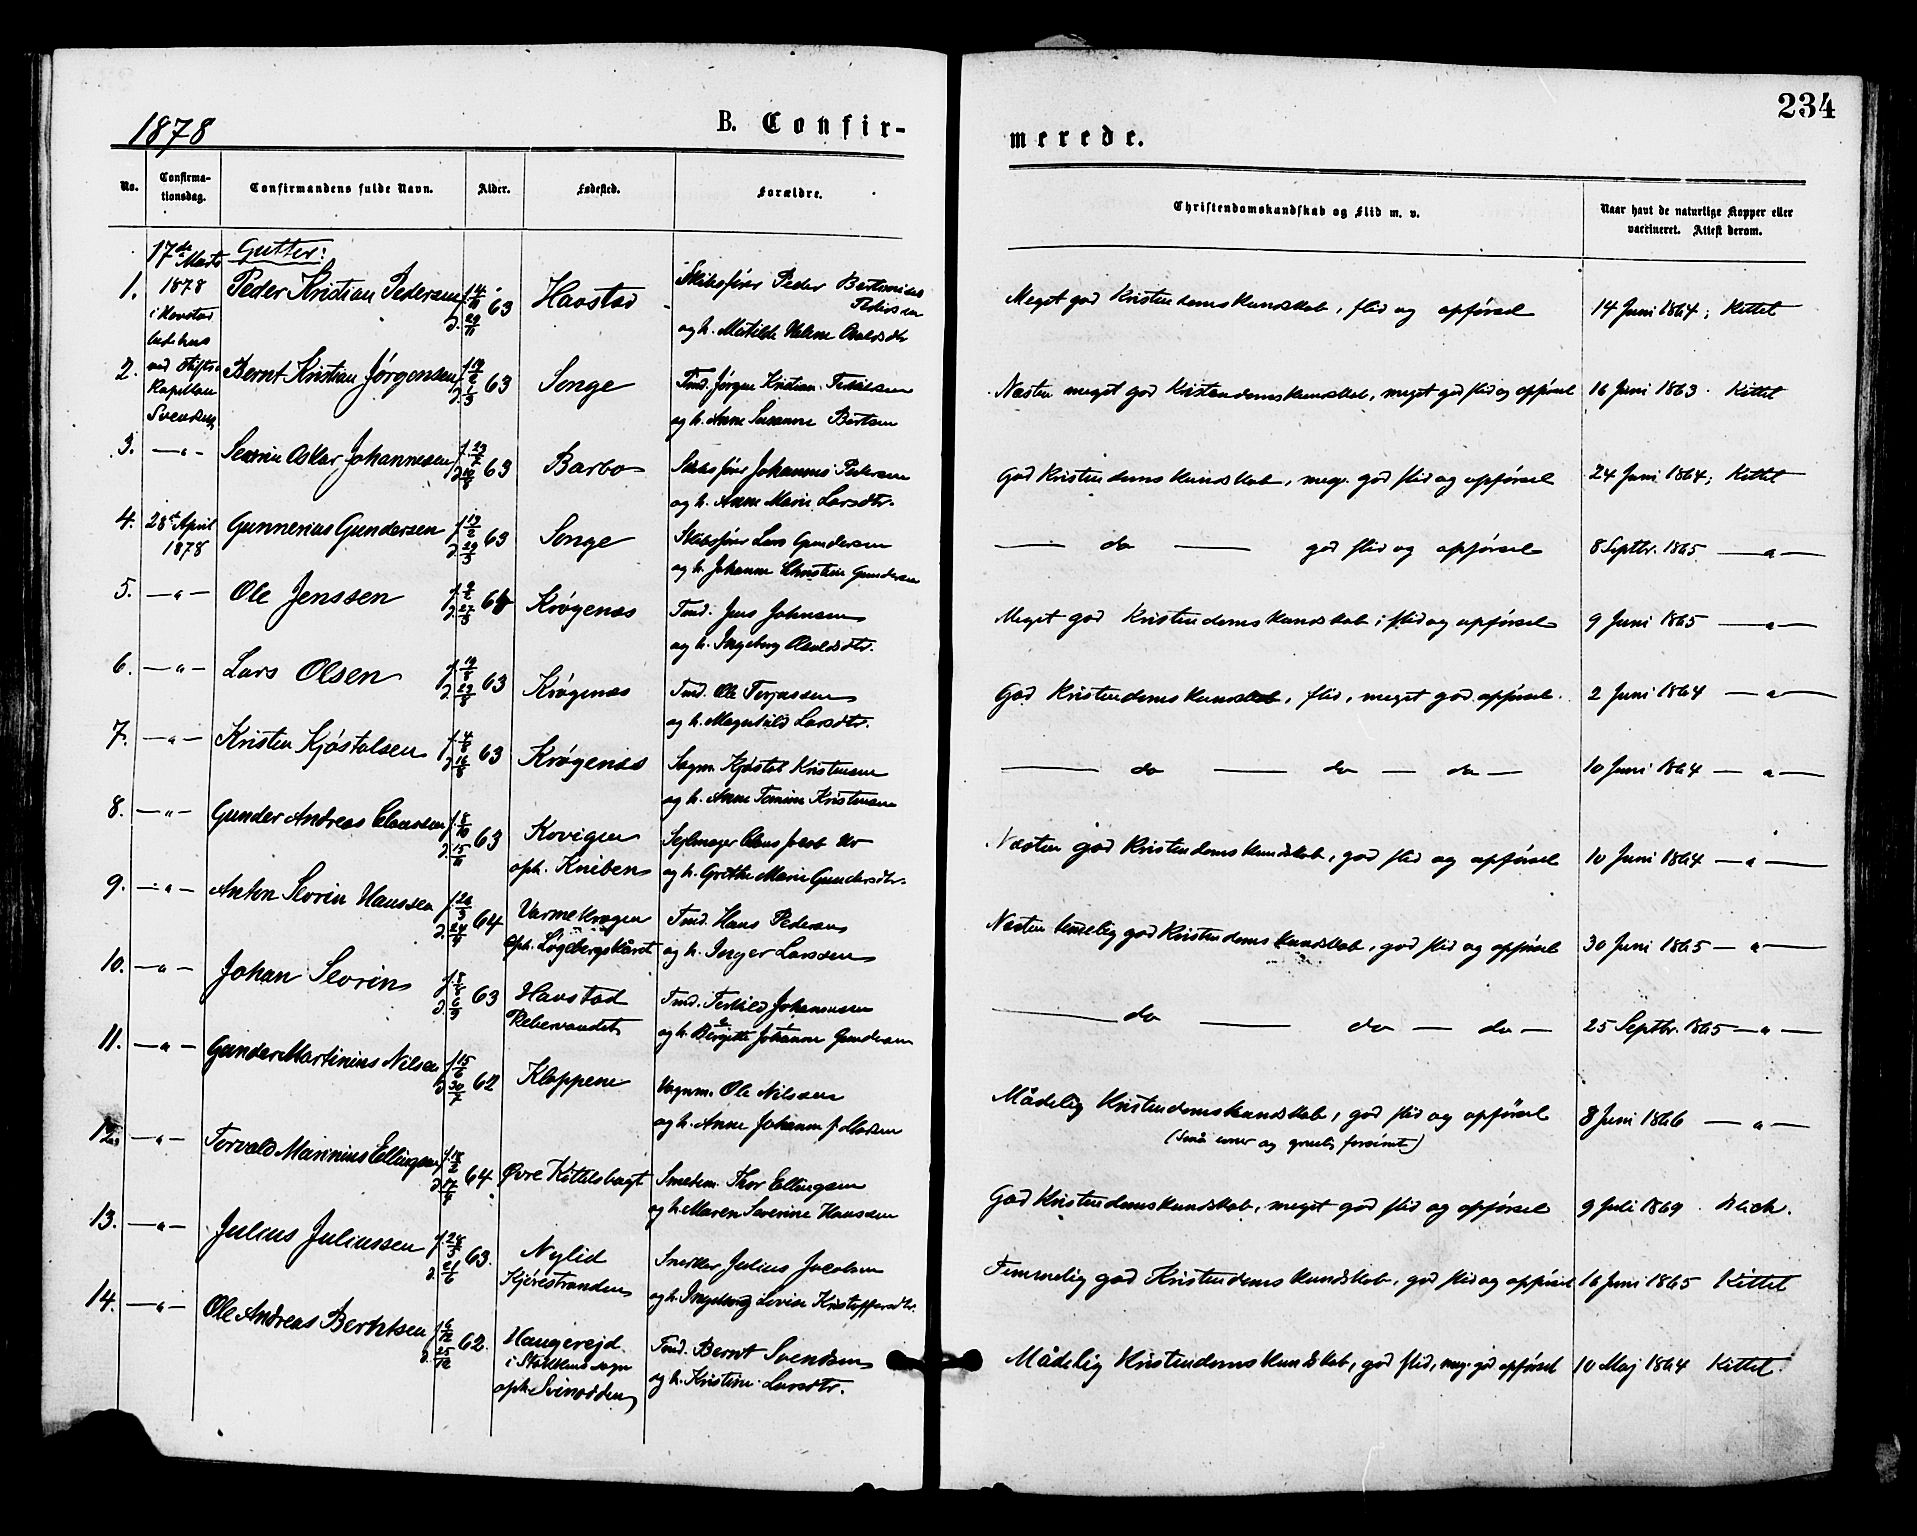 1878
B. Confir-
merede.
234
No.
Confirma-
tionsdag.
Confirmandens fulde Navn.
Alder.
Fødested.
Forældre.
Christendomskundskab og Flid m. v.
Naar havt de naturlige Kopper eller
vaccineret. Attest derom.
17de Marts
Gutter:
1. 1878 Peder Kristian Pedersen f. 14/10 63 Havstad Skibsfører Peder
d. 29/11
og h. Matilde Helene
Meget god Kristendomskundskab, flid og opførsel 14 Juni 1864; Kittel
i Havstad
bedehus
ved Stifts
Kapellan
Svendsen
2. Bernt Kristian Jørgensen 63 Songe Tmd. Jørgen Kristian Terkilsen
og h. Anne Susanne Bertsen
Næsten meget god Kristendomskundskab, meget god flid og opførsel 16 Juni 1863. Kittel
3. —"— Severin Oskar Johannesen 63 Barbo Skibsfører Johannes Pedersen
og h. Anne Marie Larsdtr.
God Kristendomskundskab, meg. god flid og opførsel 24 Juni 1864; Kittel
4. 28de April Gunnerius Gundersen f. 19/2 63 Songe Skibsfører Lars Gundersen
1878 d. 29/3
og h. Johanne Christine Gundersen
— do — god flid og opførsel 8 Septbr. 1865 —"—
5. —"— Ole Jenssen d. 27/3 64 Krøgenes Tmd. Jens Johnsen
og h. Ingeborg Oxoldsdtr.
Meget god Kristendomskundskab, flid og opførsel 9 Juni 1865 —"—
6. —"— Lars Olsen f. 19/8 63 Krøgenes Tmd. Ole Terjassen
og h. Magnhild Larsdtr.
God Kristendomskundskab, flid, meget god opførsel. 2 Juni 1864 —"—
7. —"— Kristen Kjøstolsen f. 4/8 63 Krøgenes Sagm. Kjøstol Kristensen
d. 16/8
og h. Anne Tomine Kristensen
— do — do — do — 10 Juni 1864 —"—
8. —"— Gunder Andreas Claussen f. 8/10 63 Kovigen Sejlmager Claus Jacob
d. 15/11 oph. Kniben og h. Grethe Marie Gundersdtr.
Næsten god Kristendomskundskab, god flid og opførsel 10 Juni 1864 —"—
9. —"— Anton Severin Hanssen f. 26/3 64 Varmekrogen Tmd. Hans Pedersen
d. 24/4 oph. Løgebergskåret og h. Inger Larssen
Næsten temmelig god Kristendomskundskab, god flid og opførsel 30 Juni 1865 —"—
10. —"— Johan Severin 63 Havstad Tmd. Terkild Johannessen
og h. Birgitte Johanne Gundersen
— do — do — do — 25 Septbr. 1865 —"—
11. —"— Gunder Martinius Nilsen f. 15/6 62 Kloppene Vognm. Ole Nilssen
d. 30/7
og h. Anne Johanne f. Madsen
Mådelig Kristendomskundskab, god flid og opførsel 8 Juni 1866 —"—
12. —"— Torvald Marinius Ellingsen f. 18/2 64 Øvre Kittelsbugt Smedem. Thor Ellingsen
d. 17/4
og h. Maren Severine Hanssen
God Kristendomskundskab, meget god flid og opførsel 9 Juli 1869.
13. —"— Julius Juliussen 63. Nylid Snekker Julius Jacobsen
d. 21/6 Kjørestranden og h. Ingeborg Lovise Kristoffersdtr.
Temmelig god Kristendomskundskab, god flid og opførsel 16 Juni 1865 Kittel
14. —"— Ole Andreas Berntsen f. 6/12 62. Haugerejd. Tmd. Bernt Svendsen
d. 25/12 i Stokkens sogn og h. Kristine Larsdtr.
oph. Svinodden
Mådelig Kristendomskundskab, god flid, meg. god opførsel 10 Maj 1864 Kittel.